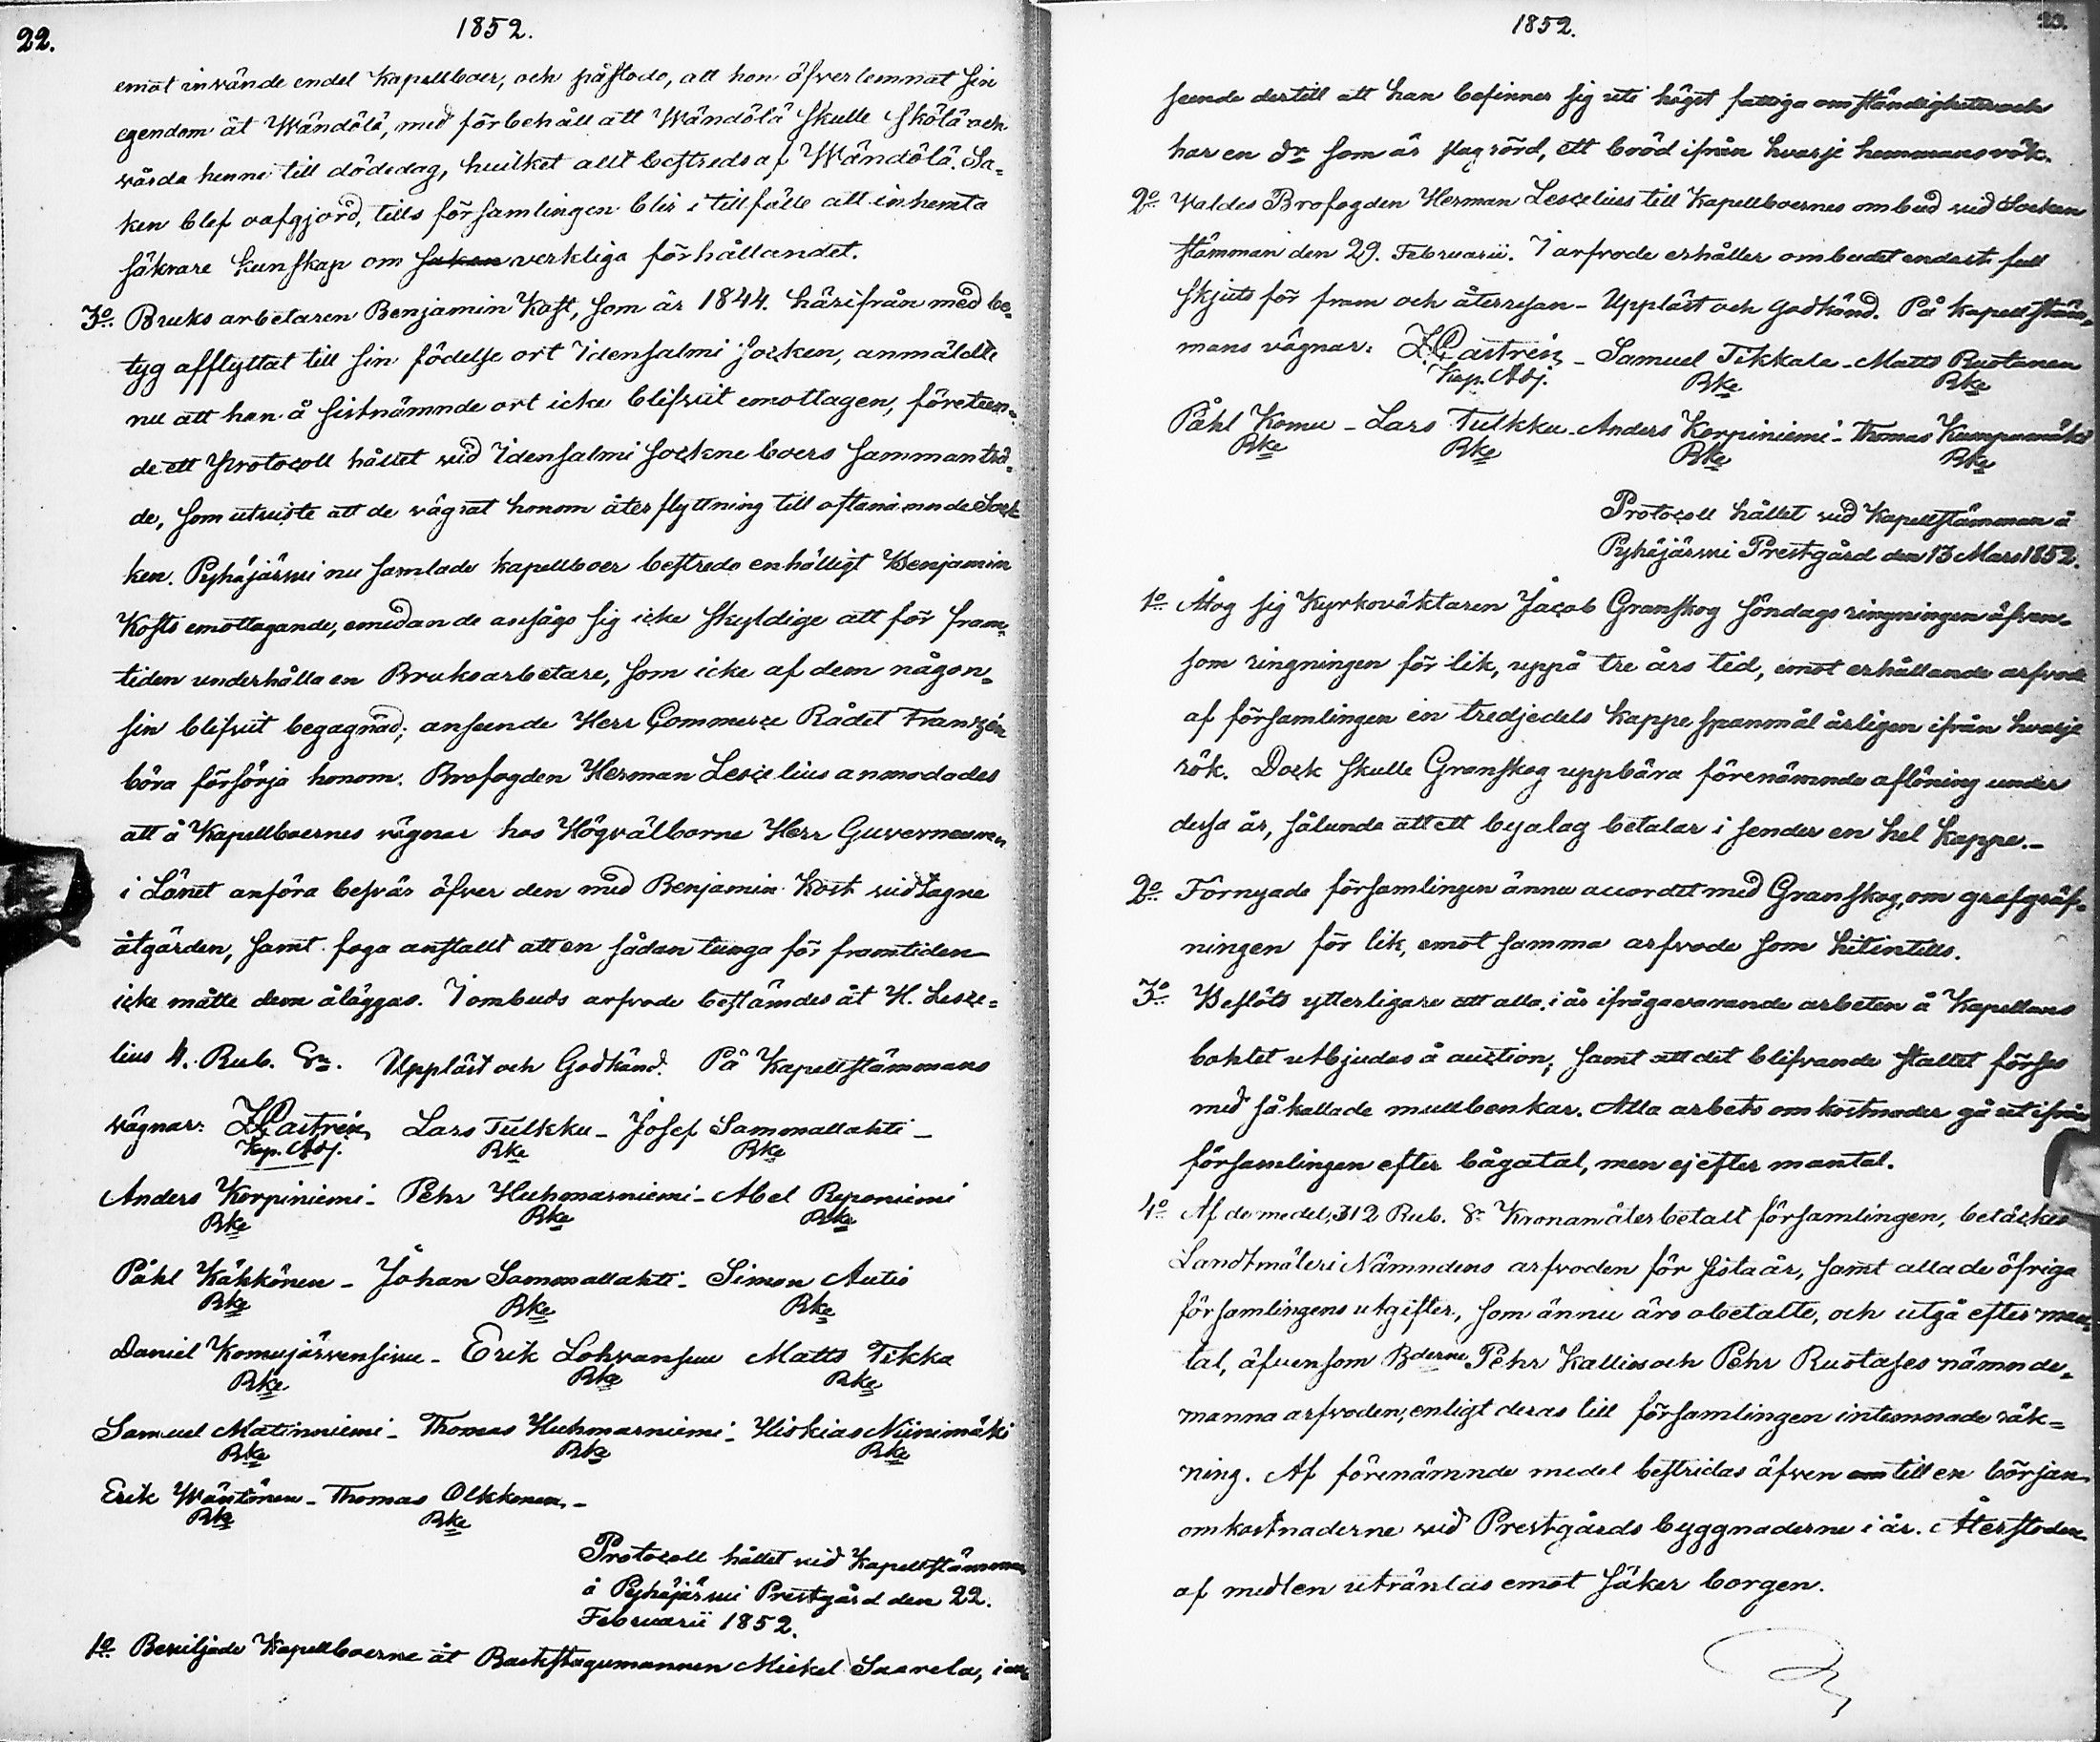 22.
1852.
emot invände endel Kapellboer, och påstodo, att hon öfverlemnat sin
egendom åt Wändölä, med förbehåll att Wändölä skulle sköta och
vårda henne till dödedag, hvilket allt bestreds af Wändölä. Sa-
ken blef oafgjord, tills församlingen blir i tillfälle att inhemta
säkrare kunskap om saken verkliga förhållandet.
3o. Bruks arbetaren Benjamin Kost, som år 1844. härifrån med be-
tyg afflyttat till sin födelse ort Idensalmi Socken, anmälde
nu att han å sistnämnde ort icke blifvit emottagen, företeen-
de ett Protocoll hållet vid Idensalmi Sockne boers sammanträ-
de, som utviste att de vägrat honom återflyttning till oftanämnde Sock-
ken. Pyhäjärvi nu samlade kapellboer bestredo enhälligt Benjamin
Kosts emottagande, emedan de ansågo sig icke skyldige att för fram-
tiden underhålla en Bruksarbetare, som icke af dem någon-
sin blifvit begagnad; anseende Herr Commerce Rådet Franzén
böra försörja honom. Brofogden Herman Lescelius anmodades
att å Kapellboernes vägnar hos Högvälborne Herr Guverneuren
i Länet anföra besvär öfver den med Benjamin Kost vidtagne
åtgärden, samt foga anstallt att en sådan tunga för framtiden
icke måtte dem åläggas. I ombuds arfvode bestämdes åt H. Lesce-
lius 4. Rub. Sr. Uppläst och Godkänd. På Kapellstämmans
vägnar: Z Castrén Lars Tulkku - Josef Sammallahti -
Kap. Adj. Bke Bke
Anders Korpiniemi - Pehr Huhmarniemi - Abel Reponiemi
Bke Bke Bke
Påhl Käkkönen - Johan Sammallahti - Simon Autio
Bke Bke Bke
Daniel Komujärvensivu - Erik Lohvansuu Matts Tikka
Bke Bke Bke
Samuel Matinniemi - Thomas Huhmarniemi - Hiskias Niinimäki
Bke Bke Bke
Erik Wäntönen - Thomas Olkkonen -
Bke Bke
Protocoll hållet vid Kapellstämman
å Pyhäjärvi Prestgård den 22.
Februarii 1852.
1o Beviljade Kapellboerne åt Backstugumannen Mickel Saarela, i an-
1852.
23.
seende dertill att han befinner sig uti högst fattiga omständigheter och
har en dr som är slagrörd, ett bröd ifrån hvarje hemmansrök.
2o. Valdes Brofogden Herman Lescelius till Kapellboernes ombud vid Socken
stämman den 29. Februarii. I arfvode erhåller ombudet endast full
skjuts för fram och återresan - Uppläst och godkänd. På Kapellstäm-
mans vägnar: Z Castrén - Samuel Tikkala - Matts Ruotanen
Kap. Adj. Bke Bke
Påhl Komu - Lars Tulkku - Anders Korpiniemi - Thomas Kumpumäki
Bke Bke Bke Bke
Protocoll hållet vid Kapellstämman å
Pyhäjärvi Prestgård den 13 Mars 1852.
1o Åtog sig Kyrkoväktaren Jacob Granskog söndags ringningen äfven-
som ringningen för lik, uppå tre års tid, emot erhållande arfvode
af församlingen en tredjedels kappe spanmål årligen ifrån hvarje
rök. Dock skulle Granskog uppbära förenämnde aflöning under
dessa år, sålunda att ett byalag betalar i sender en hel kappe.-
2o. Förnyade församlingen ännu accordet med Granskog, om grafgräf-
ningen för lik, emot samma arfvode som hitintills.
3o. Beslöts ytterligare att alla i år ifrågavarande arbeten å Kapellans
bohlet utbjudas å auction; samt att det blifvande stallet förses
med så kallade mullbänkar. Alla arbets omkostnader gå ut ifrån
församlingen efter bågatal, men ej efter mantal.
4o. Af de medel, 312 Rub. Sr Kronan återbetalt församlingen, betäckes
Landtmäteri Nämndens arfvoden för sista år, samt alla de öfriga
församlingens utgifter, som ännu äro obetalte, och utgå efter man-
tal, äfvensom Bderne Pehr Kallios och Pehr Ruotases nämnde-
manna arfvoden, enligt deras till församlingen inlemnade räk-
ning. Af förenämnde medel bestridas äfven om till en början
omkostnaderne vid Prestgårds byggnaderne i år. Återstoden
af medlen uträntas emot säker borgen.